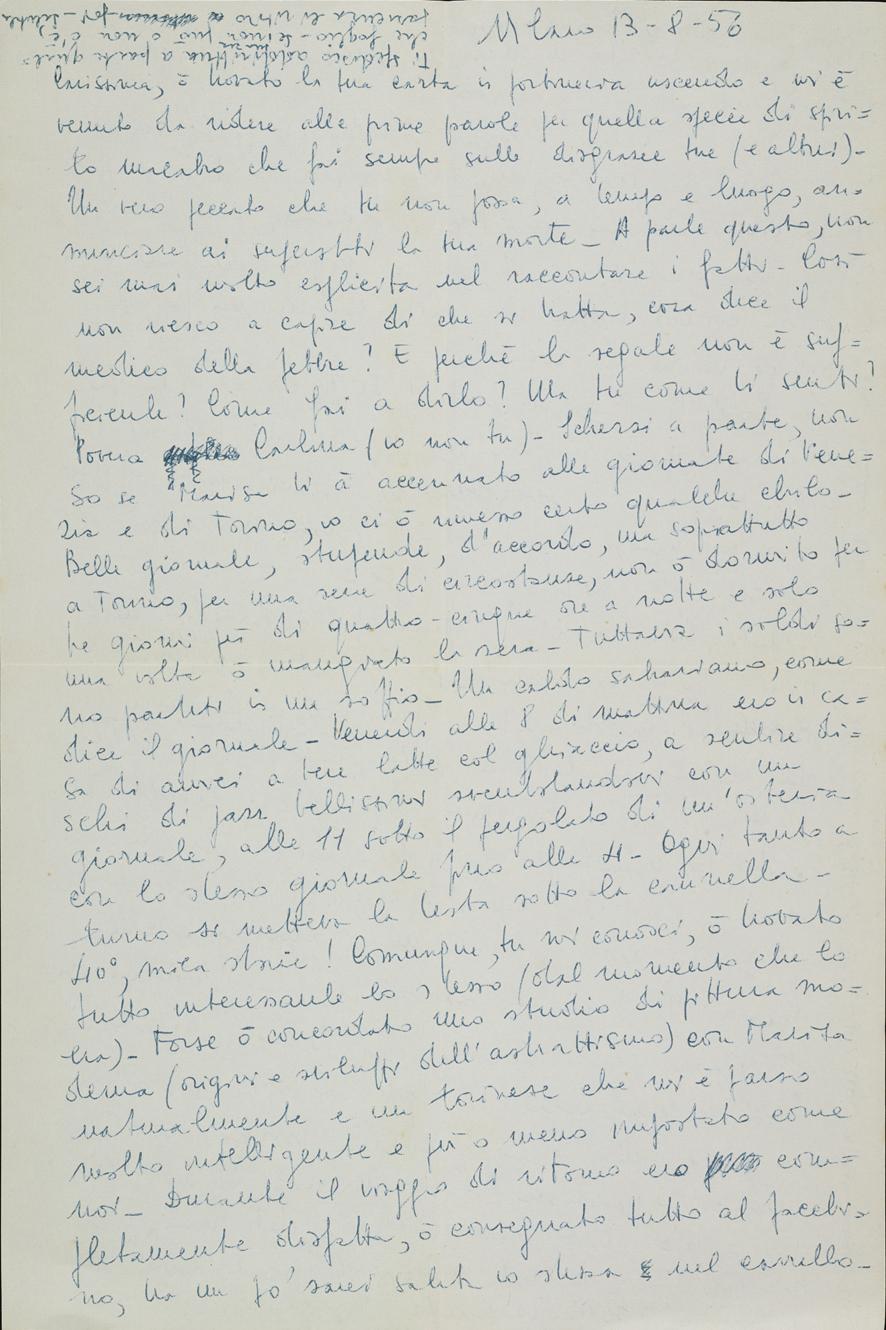 Milano 13-8-56
Ti spedisco a parte
che foglio - se non può o non c'è,
pazienza
Carissima, ò trovato la tua carta in portineria uscendo e mi è
venuto da ridere alle prime parole per quella specie di spiri=
to macabro che fai sempre sulle disgrazie tue (e altrui)-
Un vero peccato che tu non possa, a tempo e luogo, an=
nunciare ai superstiti la tua morte_ A parte questo, non
sei mai molto esplicita nel raccontare i fatti- Così
non riesco a capire di che si tratta, cosa dice il
medico della febbre? E perché la segale non è suf=
ficiente? Come fai a dirlo? Ma tu come ti senti?
Povera Carlina (io non tu)- Scherzi a parte, non
so se Marisa ti à accennato alle giornate di Vene=
zia e di Torino, io ci ò rimesso certo qualche chilo_
Belle giornate, stupende, d'accordo, ma soprattutto
a Torino, per una serie di circostanze, non ò dormito per
tre giorni più di quattro-cinque ore a notte e solo
una volta ò mangiato la sera_ Tuttavia i soldi so=
no partiti in un soffio_ Un caldo sahariano, come
dice il giornale_ Venerdì alle 8 di mattina ero in ca=
sa di amici a bere latte col ghiaccio, a sentire di=
schi di jazz bellissimi sventolandosi con un
giornale, alle 11 sotto il pergolato di un'osteria
con lo stesso giornale fino alle 4- Ogni tanto a
turno si metteva la testa sotto la cannella-
40°, mica storie! Comunque, tu mi conosci, ò trovato
tutto interessante lo stesso (dal momento che lo
era)- Forse ò concordato uno studio di pittura mo=
derna (origini e sviluppi dell'astrattismo) con Marisa
naturalmente e un torinese che mi è parso
molto intelligente e più o meno impostato come
noi_ Durante il viaggio di ritorno ero com=
pletamente disfatta, ò consegnato tutto al facchi=
no, tra un po' sarei salita io stessa nel carrello-